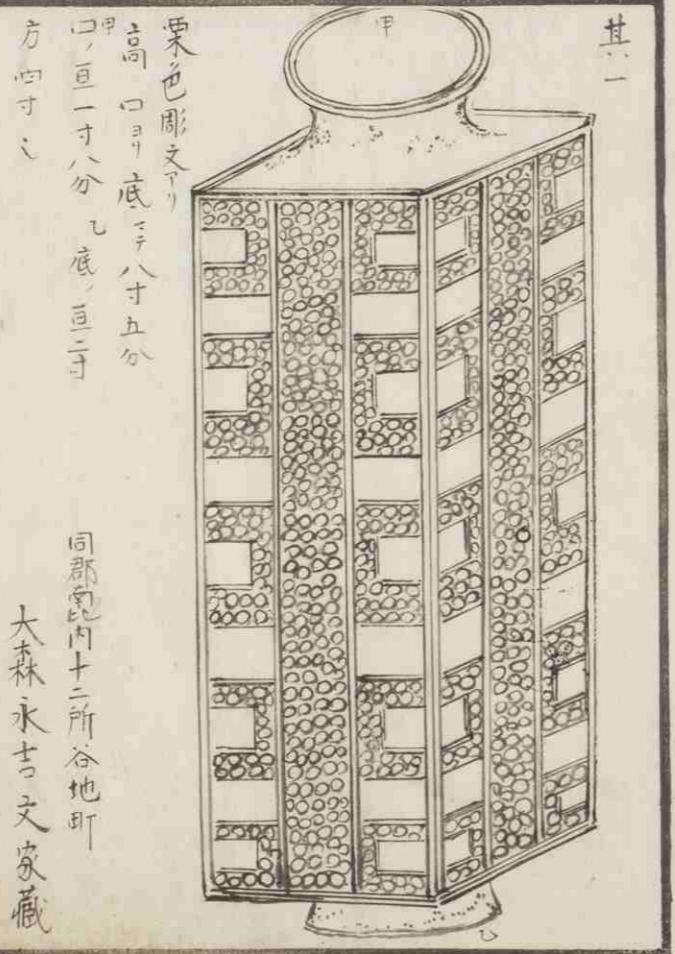 其ノ一
甲
栗色彫文アリ
高 口ヨリ底マテ八寸五分
甲
口ノ亘一寸八分 乙底ノ亘二寸
方四寸
同郡南比内十二所谷地町
大森永吉文家蔵
乙